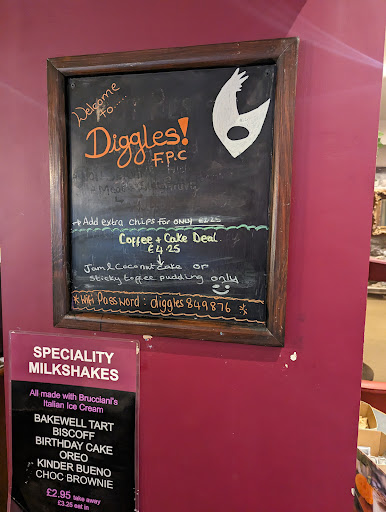 Welcome
To....
Diggles!
F.P.C
→ Add extra chips for ONLY £2.25
Coffee + Cake Deal
£4.25
Jam & Coconut cake or
sticky toffee pudding only
* Wifi Password: diggles849876 *
SPECIALITY
MILKSHAKES
All made with Brucciani's
Italian Ice Cream
BAKEWELL TART
BISCOFF
BIRTHDAY CAKE
OREO
KINDER BUENO
CHOC BROWNIE
£2.95 take away
£3.25 eat in